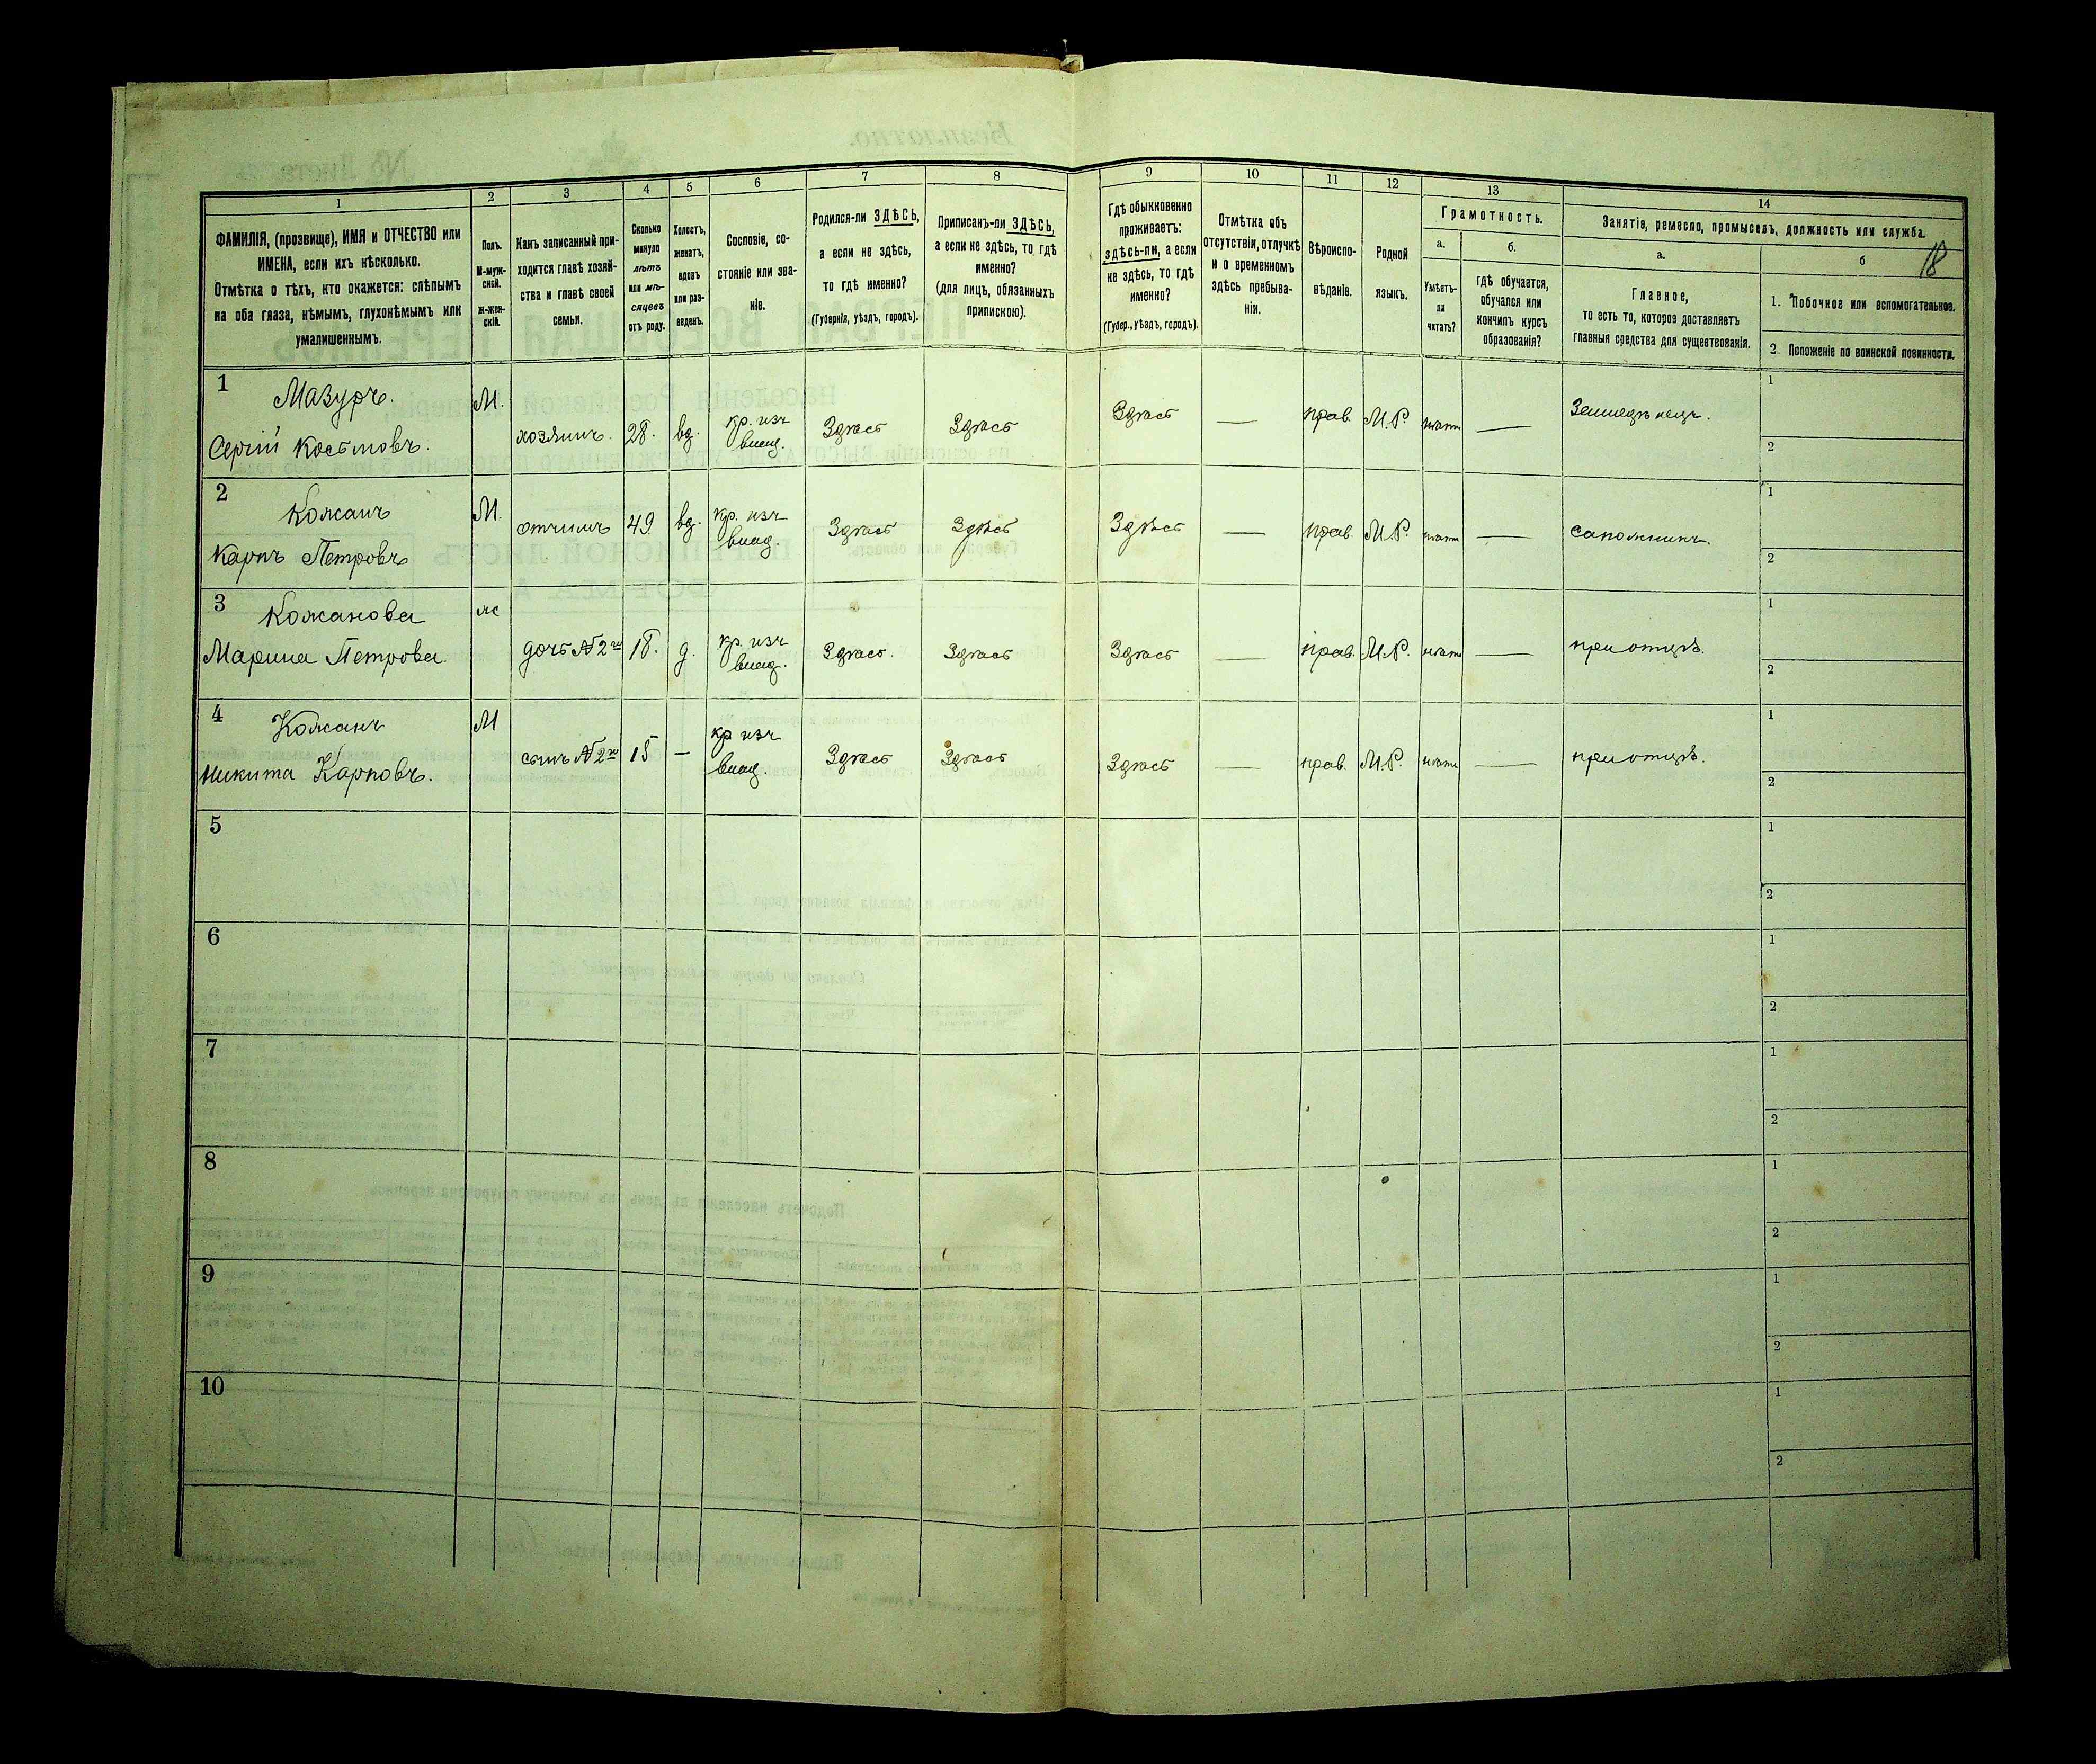 18
1 2 3 4 5 6 7 8 9 10 11 12 13 14
ФАМИЛІЯ, (прозвище), ИМЯ и ОТЧЕСТВО или
ИМЕНА, если ихъ нѣсколько.
Отмѣтка о тѣхъ, кто окажется: слѣпымъ
на оба глаза, нѣмымъ, глухонѣмымъ или
умалишеннымъ.
Полъ.
М-муж-
ской.
Ж-жен-
скій.
Какъ записанный при-
ходится главѣ хозяй-
ства и главѣ своей
семьи.
Сколько
минуло
лѣтъ
или мѣ-
сяцевъ
отъ роду.
Холостъ,
женатъ,
вдовъ
или раз-
веденъ.
Сословіе, со-
стояніе или зва-
ніе.
Родился-ли ЗДѢСЬ,
а если не здѣсь,
то гдѣ именно?
(Губернія, уѣздъ, городъ).
Приписанъ-ли ЗДѢСЬ,
а если не здѣсь, то гдѣ
именно?
(для лицъ, обязанныхъ
припискою).
Гдѣ обыкновенно
проживаетъ:
здѣсь-ли, а если
не здѣсь, то гдѣ
именно?
(Губер., уѣздъ, городъ).
Отмѣтка объ
отсутствіи, отлучкѣ
и о временномъ
здѣсь пребыва-
ніи.
Вѣроиспо-
вѣданіе.
Родной
языкъ.
Грамотность.
а.
Умѣетъ-
ли
читать?
б.
гдѣ обучается,
обучался или
кончилъ курсъ
образованія?
Занятіе, ремесло, промыселъ, должность или служба.
а.
Главное,
то есть то, которое доставляетъ
главныя средства для существованія.
б
1. Побочное или вспомогательное.
2. Положеніе по воинской повинности.
1 Мазуръ. М. хозяинъ. 28. вд. кр. изъ владѣ. Здѣсь Здѣсь Здѣсь — прав. М.Р. нѣтъ — Земледѣлецъ. 1
Сергій Костювъ. 2
2 Кожанъ М. отчимъ 49 вд. кр. изъ влад. Здѣсь Здѣсь Здѣсь — прав. М.Р. нѣтъ — сапожникъ. 1
Карпъ Петровъ 2
3 Кожанова ж дочь №2го 18. д. кр. изъ влад. Здѣсь. Здѣсь Здѣсь — прав. М.Р. нѣтъ — при отцѣ. 1
Марина Петрова. 2
4 Кожанъ М сынъ №2го 15 — кр изъ влад. Здѣсь Здѣсь Здѣсь — прав. М.Р. нѣтъ — при отцѣ. 1
Никита Карповъ. 2
5 1
2
6 1
2
7 1
2
8 1
2
9 1
2
10 1
2